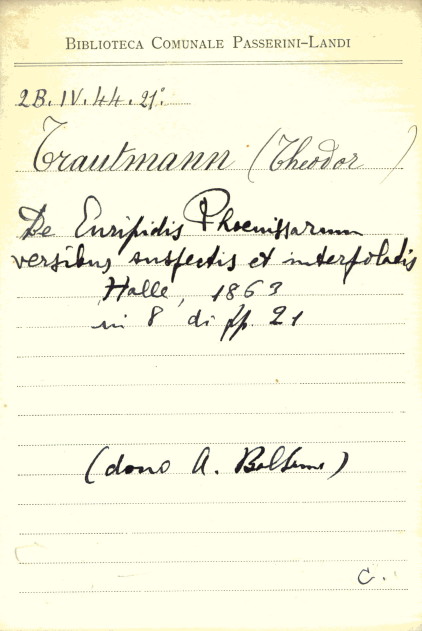 BIBLIOTECA COMUNALE PASSERINI-LANDI
2B.IV.44.21°.
Trautmann (Theodor)
De Euripidis Phoenissarum
versibus suspectis et interpolatis
Halle, 1863
in 8° di pp. 21
(dono A. Balsamo)
C.